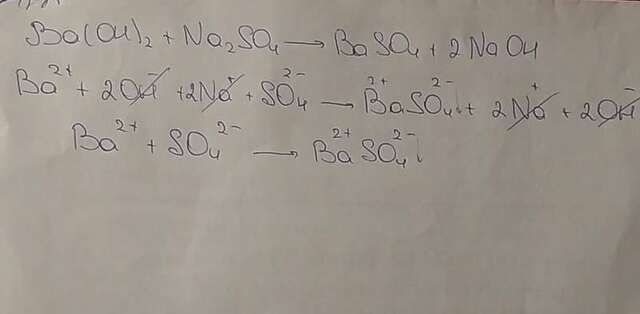 Ba(OH)₂ + Na₂SO₄ → BaSO₄ + 2NaOH
Ba²⁺ + 2OH⁻ + 2Na⁺ + SO₄²⁻ → Ba²⁺SO₄²⁻↓ + 2Na⁺ + 2OH⁻
Ba²⁺ + SO₄²⁻ → Ba²⁺SO₄²⁻↓